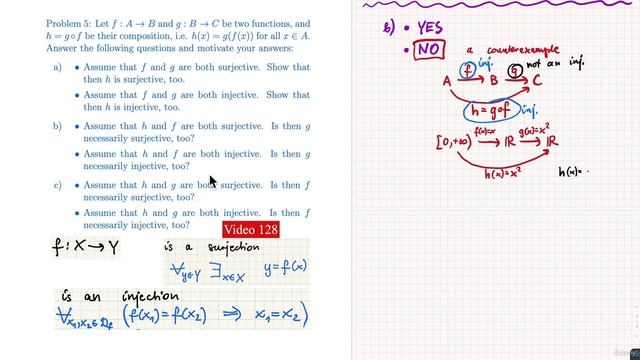 Problem 5: Let f : A → B and g : B → C be two functions, and
h = g ∘ f be their composition, i.e. h(x) = g(f(x)) for all x ∈ A.
Answer the following questions and motivate your answers:
a) • Assume that f and g are both surjective. Show that
then h is surjective, too.
• Assume that f and g are both injective. Show that
then h is injective, too.
b) • Assume that h and f are both surjective. Is then g
necessarily surjective, too?
• Assume that h and f are both injective. Is then g
necessarily injective, too?
c) • Assume that h and g are both surjective. Is then f
necessarily surjective, too?
• Assume that h and g are both injective. Is then f
necessarily injective, too?
Video 128
f : X → Y
is a surjection
∀y∈Y ∃x∈X y = f(x)
is an injection
∀x₁,x₂∈Df (f(x₁) = f(x₂) ⟹ x₁ = x₂)
b) • YES
• NO
a counterexample
f inj. g not an inj.
A → B → C
h = g∘f inj.
f(x)=x g(x)=x²
[0,+∞) → ℝ → ℝ
h(x)=x²
h(x)=